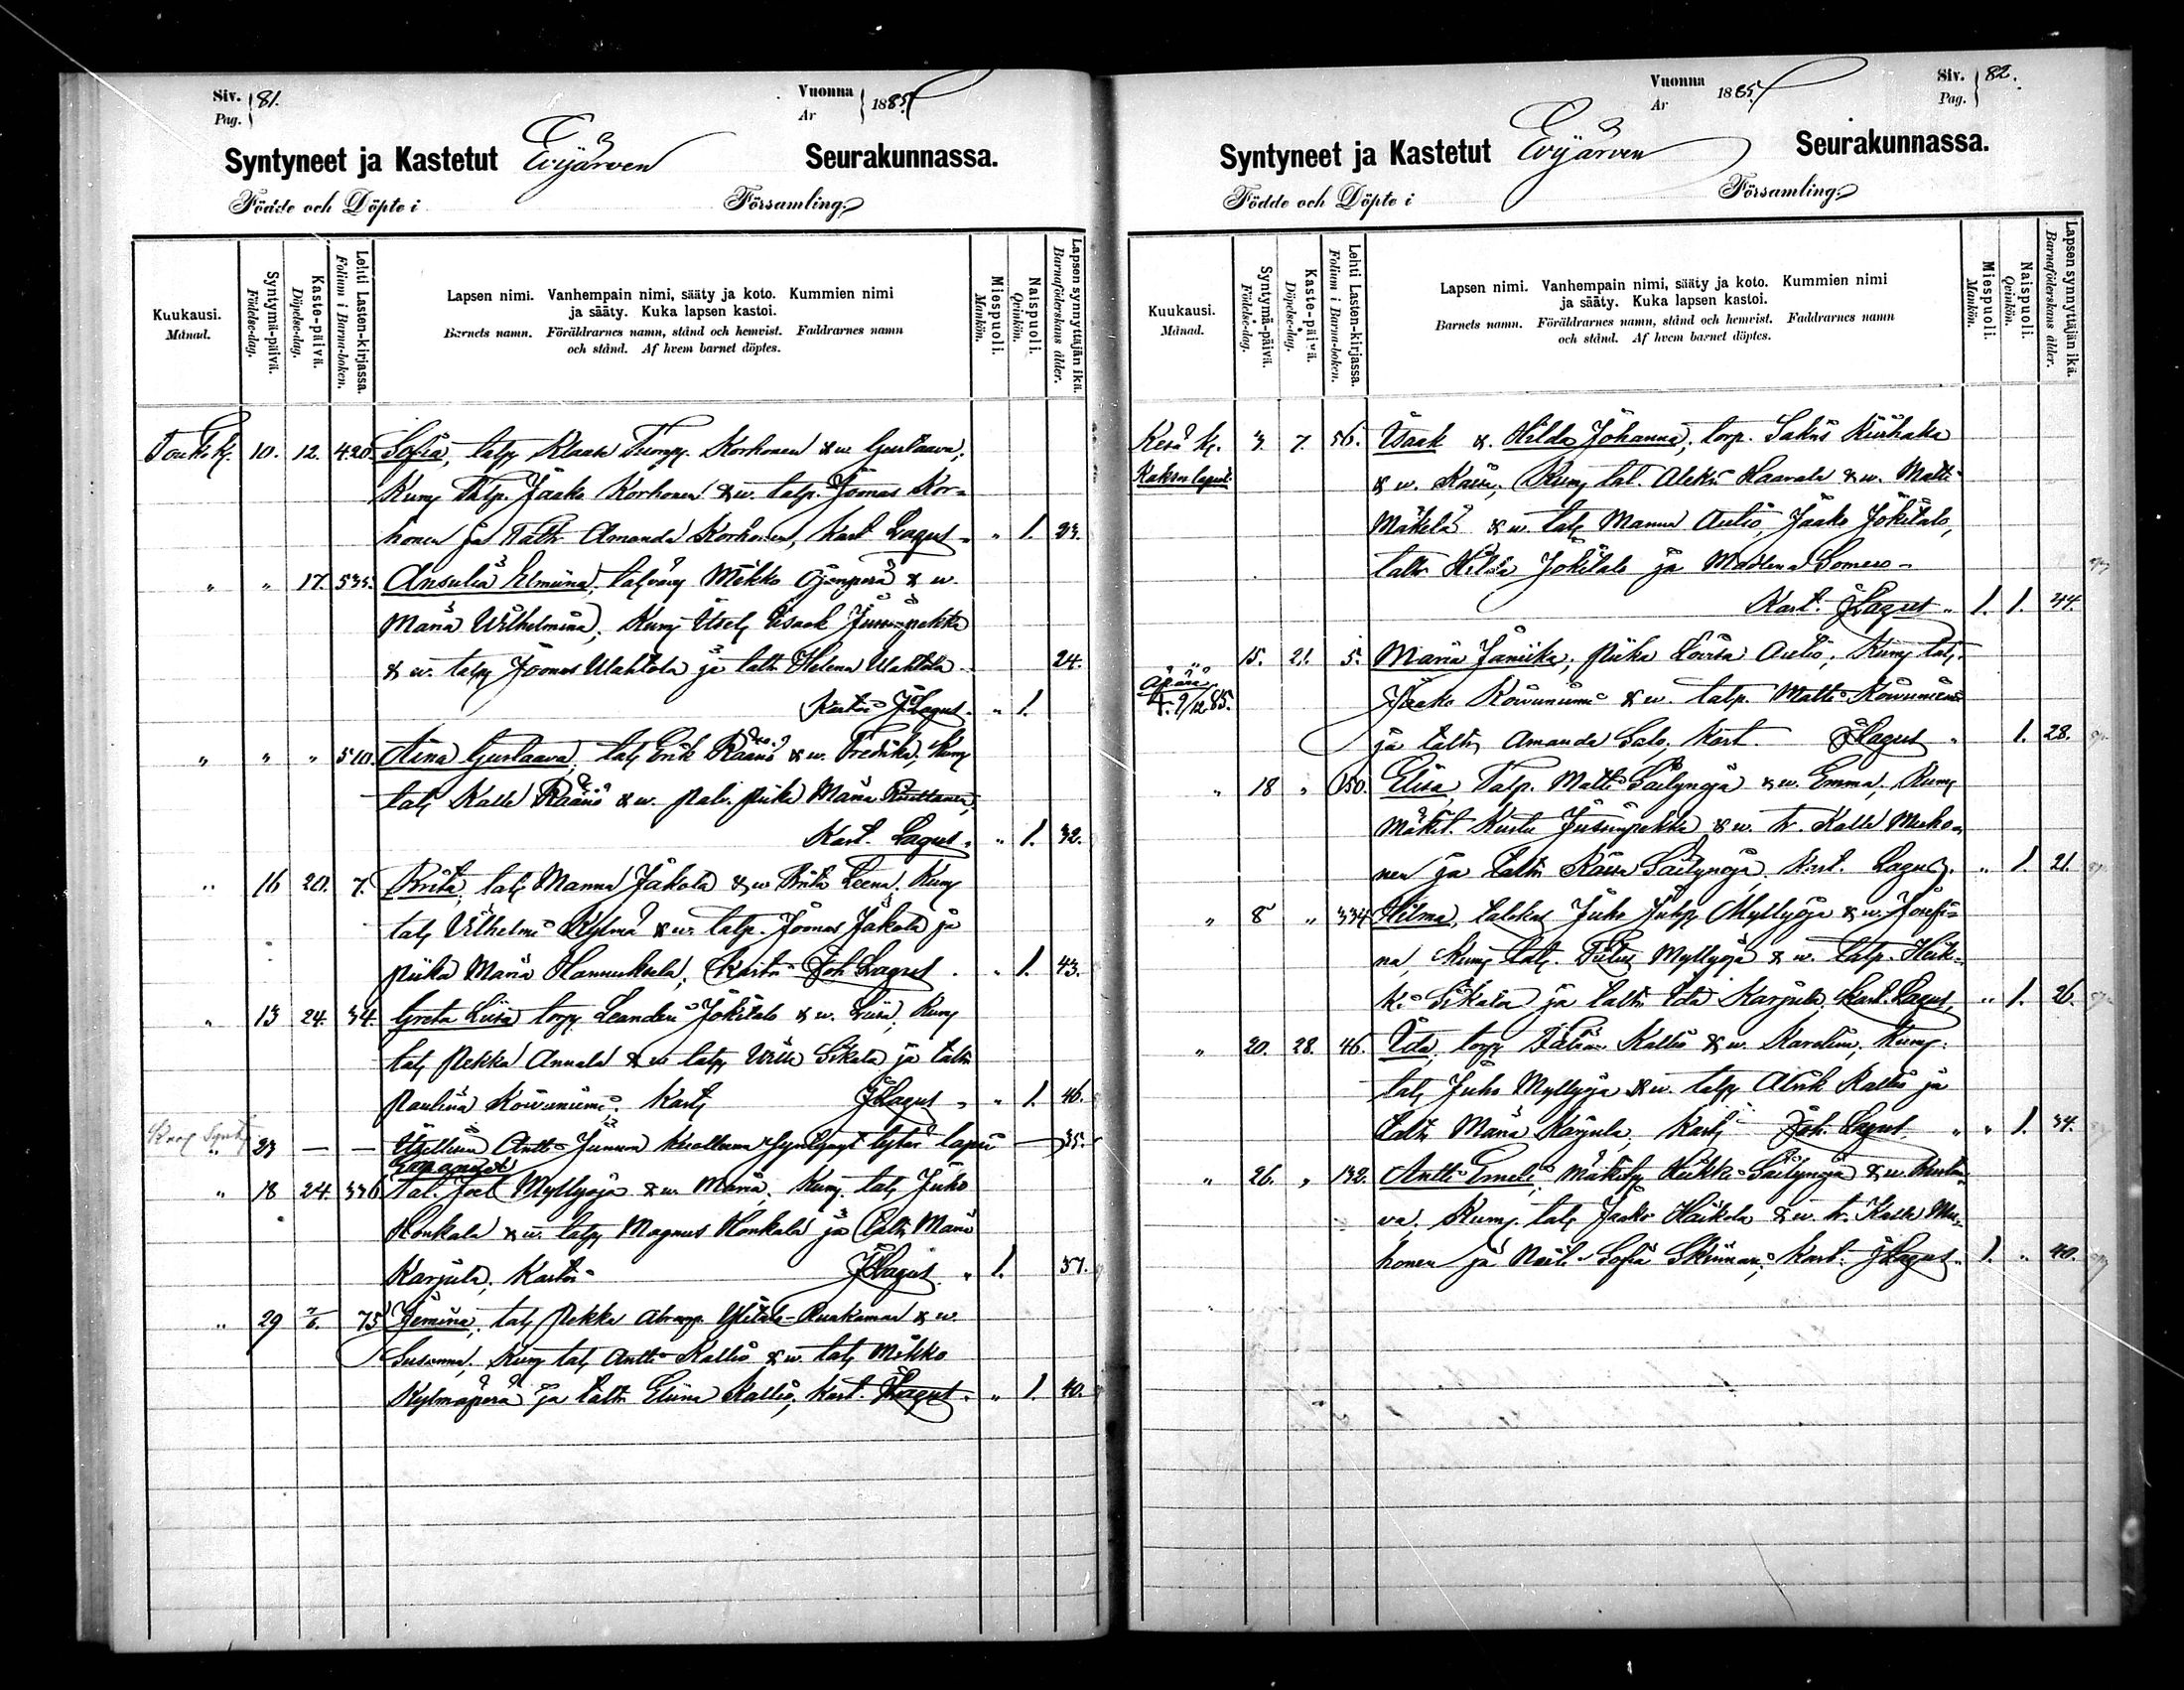 Siv. 81.
Pag.
Vuonna 1885
År
Syntyneet ja Kastetut Evijärven Seurakunnassa.
Födde och Döpte i Församling.
Kuukausi.
Månad.
Syntymä-päivä.
Födelse-dag.
Kaste-päivä.
Döpelse-dag.
Lehti Lasten-kirjassa.
Folium i Barna-boken.
Lapsen nimi. Vanhempain nimi, sääty ja koto. Kummien nimi
ja sääty. Kuka lapsen kastoi.
Barnets namn. Föräldrarnes namn, stånd och hemvist. Faddrarnes namn
och stånd. Af hvem barnet döptes.
Miespuoli.
Mankön.
Naispuoli.
Qvinkön.
Lapsen synnyttäjän ikä.
Barnaföderskans ålder.
Toukok. 10. 12. 420. Sofia, talp Klaas Korhonen & w. Gustaava,
Kumj Talp. Jaako Korhonen & w. talp. Joonas Kor-
honen ja Taltr Amanda Korhonen, Kast. Lagus " 1. 23.
" " 17. 535. Ansulia Elmiina, Mikko Ojanperä & w.
Maria Wilhelmina, Kumj Eisack Jussinpekka
& w. talp Joonas Ulahtola ja taltr Helena Ulahtola 24.
Kastoi JLagus " 1.
" " " 510. Aina Gustaava, talp Erik & w. Fredrika, Kumj
talp Kalle & w. palv. piika Maria
Kast. Lagus. " 1. 32.
" 16 20. 7. Brita, talp Manna Jakola & w. Brita Leena. Kumj
talp Vilhelmi Kylmä & w. talp. Joonas Jakola ja
piika Maria Hannuksela, Kastoi Joh Lagus. " 1. 43.
" 13 24. 34. Greta Liisa torp Leanderi Jokitalo & w. Liisa, Kumj
talp Pekka Annala & w. talp Ville Sikala ja taltr
Pauliina Koivuniemi. Kast JLagus " " 1. 46.
" 23 — — Antti Junnon Syntynyt tytär lapsi — 35.
Emanuel
" 18 24. 336 tal. Joel Myllyoja & w. Maria. Kumj talp Juho
Honkala & w. talp Magnus Honkala ja taltr Maria
Karjula, Kastoi JLagus " 1. 37.
" 29 7/6. 75 Jemina, talp Pekka Ylitalo-Ruakamaa & w.
Susanna, Kumj talp Antti Kallio & w. talp Mikko
Kylmäperä ja taltr Eliina Kallio, Kast. JLagus " 1. 40.
Siv. 82.
Pag.
Vuonna 1885
År
Syntyneet ja Kastetut Evijärven Seurakunnassa.
Födde och Döpte i Församling.
Kuukausi.
Månad.
Syntymä-päivä.
Födelse-dag.
Kaste-päivä.
Döpelse-dag.
Lehti Lasten-kirjassa.
Folium i Barna-boken.
Lapsen nimi. Vanhempain nimi, sääty ja koto. Kummien nimi
ja sääty. Kuka lapsen kastoi.
Barnets namn. Föräldrarnes namn, stånd och hemvist. Faddrarnes namn
och stånd. Af hvem barnet döptes.
Miespuoli.
Mankön.
Naispuoli.
Qvinkön.
Lapsen synnyttäjän ikä.
Barnaföderskans ålder.
Kesä k. 3. 7. 56. Isaak & Hilda Johanna, torp. Sakris Kivihaka
Kakson lapset & w. Kaisa, Kumj tal. Aleksi Haavala & w. Matti
Mäkelä & w. talp Manna Aulio, Jaako Jokitalo,
taltr Hilda Jokitalo ja Madlena Somero
Kast. JLagus " 1. 1. 44.
15. 21. 5. Maria Janiika, piika Loviisa Aulio, Kumj talp
Äpärä 9/12 85. Jaako Koivuniemi & w. talp. Matti Koivuniemi
ja taltr Amanda Salo. Kast. JLagus " 1. 28.
" 18 " 150. Elisa, Talp. Matti Säilynoja & w. Emma, Kumj
Mäkit. Kustu Jussinpekka & w. tr. Kalle Muho-
nen ja taltr Kaisa Säilynoja. Kast. Lagus. " 1. 21.
" 8 " 334 Hilma, Juho Myllyoja & w. Josefi-
na, Kumj talp. Myllyoja & w. talp. Heik-
ki Sikala ja taltr Ida Karjula, Kast. Lagus, " 1. 26.
" 20. 28. 46. Ida, torp Kallio & w. Karolina, Kumj.
talp Juho Myllyoja & w. talp Kallio ja
Taltr Maria Karjula, Kast Joh. Lagus. " " 1. 34.
" 26. " 132. Antti Emeli, Heikki Säilynoja & w. Kusta-
va, Kumj. talp Jaako Haikola & w. tr. Kalle Mu-
honen ja Neiti Sofia Skriiman, Kast. JLagus. 1. " 40.